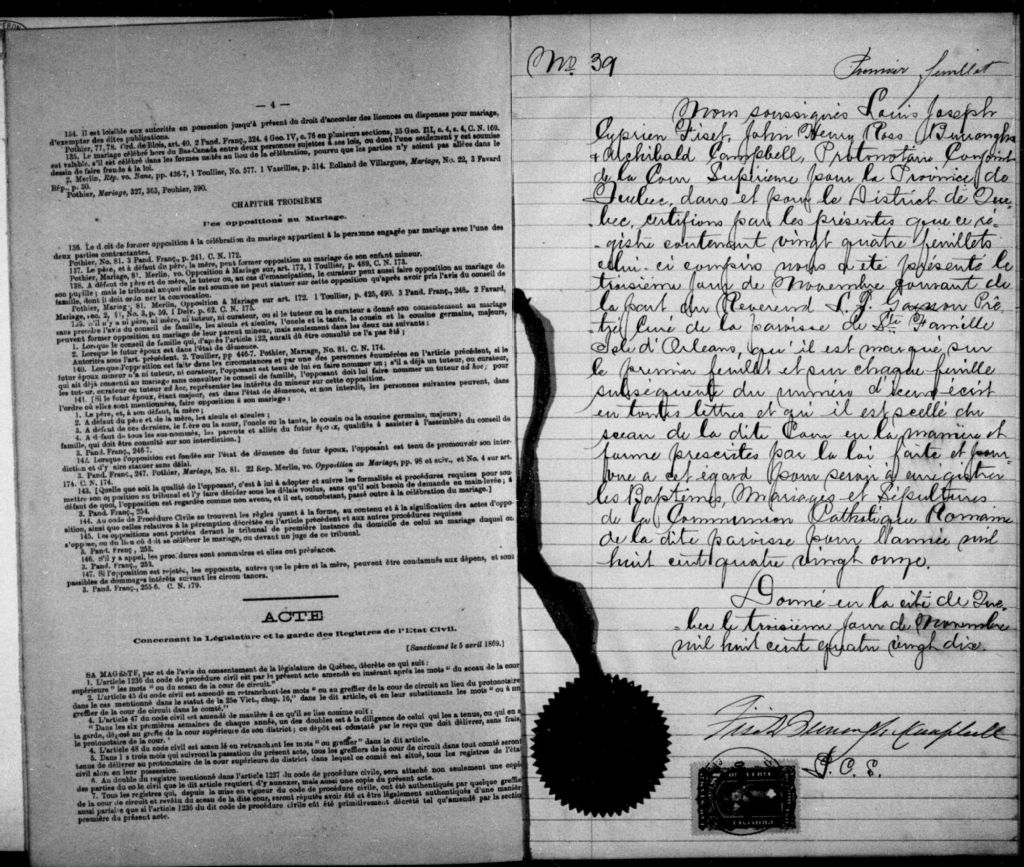 — 4 —
134. Il est loisible aux autorités en possession jusqu'à présent du droit d'accorder des licences ou dispenses pour mariage,
d'exempter des dites publications.
Pothier, 77, 78. Ord. de Blois, art. 40. 2 Pand. Franç., 324. 4 Geo. IV, c. 76 en plusieurs sections, 35 Geo. III, c. 4, s. 4, C. N. 169.
135. Le mariage célébré hors du Bas-Canada entre deux personnes sujettes à ses lois, ou dont l'une seulement y est soumise
est valable, s'il est célébré dans les formes usitées au lieu de la célébration, pourvu que les parties n'y soient pas allées dans le
dessein de faire fraude à la loi.
2 Merlin, Rép. vo. Bans, pp. 436-7, 1 Toullier, No. 577. 1 Vazeilles, p. 314. Rolland de Villargues, Mariage, No. 22, 3 Favard
Rép., p. 30.
Pothier, Mariage, 327, 363, Pouhier, 390.
CHAPITRE TROISIÈME
Des oppositions au Mariage.
136. Le d oit de former opposition à la célébration du mariage appartient à la personne engagée par mariage avec l'une des
deux parties contractantes.
Pothier, No. 81. 3 Pand. Franç., p. 241. C. N. 172.
137. Le père, et à défaut du père, la mère, peut former opposition au mariage de son enfant mineur.
Pothier, Mariage, 81. Merlin, vo. Opposition à Mariage sur art. 173, 1 Toullier, p. 489, C. N. 173.
138. A défaut de père et de mère, le tuteur ou, au cas d'émancipation, le curateur peut aussi faire opposition au mariage de
son pupille ; mais le tribunal auquel elle est soumise ne peut statuer sur cette opposition qu'après avoir pris l'avis du conseil de
famille, dont il doit ordonner la convocation.
Pothier, Mariag , 81. Merlin, Opposition à Mariage sur art. 172. 1 Toullier, p. 425, 490. 3 Pand. Franç., 248. 2 Favard,
Mariage, sec. 2, § 1, No. 3, p. 59. 1 Delv. p. 62. C. N. 175.
139. S'il n'y a ni père, ni mère, ni tuteur, ni curateur, ou si le tuteur ou le curateur a donné son consentement au mariage
sans prendre l'avis du conseil de famille, les aïeuls et aïeules, l'oncle et la tante, le cousin et la cousine germains, majeurs,
peuvent former opposition au mariage de leur parent mineur, mais seulement dans les deux cas suivants :
1. Lorsque le conseil de famille qui, d'après l'article 122, aurait dû être consulté ne l'a pas été ;
2. Lorsque le futur époux est dans l'état de démence.
Autorités sous l'art. précédent. 2 Toullier, pp 446-7. Pothier, Mariage, No. 81. C. N. 174.
140. Lorsque l'opposition est faite dans les circonstances et par une des personnes énumérées en l'article précédent, si le
futur époux mineur n'a ni tuteur, ni curateur, l'opposant est tenu de lui en faire nommer un ; s'il a déjà un tuteur, ou curateur,
qui ait déjà consenti au mariage sans consulter le conseil de famille, l'opposant doit lui faire nommer un tuteur ad hoc ; pour
les tuteur, curateur ou tuteur ad hoc, représenter les intérêts du mineur sur cette opposition.
141. [Si le futur époux, étant majeur, est dans l'état de démence, et non interdit, les personnes suivantes peuvent, dans
l'ordre où elles sont mentionnées, faire opposition à son mariage :
1. Le père, et, à son défaut, la mère ;
2. A défaut du père et de la mère, les aïeuls et aïeules ;
3. A défaut de ces derniers, le frère ou la sœur, l'oncle ou la tante, le cousin ou la cousine germains, majeurs ;
4. A défaut de tous les sus-nommés, les parents et alliés du futur époux, qualifiés à assister à l'assemblée du conseil de
famille, qui doit être consulté sur son interdiction.]
3. Pand. Franç., 246 7.
142. Lorsque l'opposition est fondée sur l'état de démence du futur époux, l'opposant est tenu de promouvoir son inter-
diction et d'y faire statuer sans délai.
3. Pand. Franç., 247. Pothier, Mariage, No. 81. 22 Rep. Merlin, vo. Opposition au Mariage, pp. 98 et suiv., et No. 4 sur art.
174. C. N. 174.
143. [Quelle que soit la qualité de l'opposant, c'est à lui à adopter et suivre les formalités et procédures requises pour sou-
mettre son opposition au tribunal et l'y faire décider sous les délais voulus, sans qu'il soit besoin de demande en main-levée ; à
défaut de quoi, l'opposition est regardée comme non avenue, et il est, nonobstant, passé outre à la célébration du mariage.]
3. Pand. Franç., 254.
144. Au code de Procédure Civile se trouvent les règles quant à la forme, au contenu et à la signification des actes d'oppo-
sition, ainsi que celles relatives à la péremption décrétée en l'article précédent et aux autres procédures requises
145. Les oppositions sont portées devant le tribunal de première instance du domicile de celui au mariage duquel on
s'oppose, ou du lieu où doit se célébrer le mariage, ou devant un juge de ce tribunal.
3. Pand. Franç., 253.
146. S'il y a appel, les procédures sont sommaires et elles ont préséance.
3. Pand. Franç., 253.
147. Si l'opposition est rejetée, les opposants, autres que le père et la mère, peuvent être condamnés aux dépens, et sont
passibles de dommages intérêts suivant les circonstances.
3. Pand. Franç., 255 6. C. N. 179.
ACTE
Concernant la Législature et la garde des Registres de l'Etat Civil.
[Sanctionné le 5 avril 1869.]
SA MAGESTÉ, par et de l'avis du consentement de la législature de Québec, décrète ce qui suit :
1. L'article 1236 du code de procédure civile est par le présent acte amendé en insérant après les mots " du sceau de la cour
supérieure " les mots " ou du sceau de la cour de circuit."
2. L'article 45 du code civil est amendé en retranchant les mots " ou au greffier de la cour de circuit au lieu du protonotaire
dans le cas mentionné dans le statut de la 25e Vict., chap. 16," dans le dit article, et en leur substituant les mots " ou à un
greffier de la cour de circuit dans le comté."
4. L'article 47 du code civil est amendé de manière à ce qu'il se lise comme suit :
" Dans les six premières semaines de chaque année, un des doubles est à la diligence de celui qui les a tenus, ou qui en a
la garde, déposé au greffe de la cour supérieure de son district ; ce dépôt est constaté par le reçu que doit délivrer, sans frais,
le protonotaire de la cour."
4. L'article 48 du code civil est amendé en retranchant les mots " ou greffier " dans le dit article.
5. Dans les trois mois qui suivront la passation du présent acte, tous les greffiers de la cour de circuit dans tout comté seront
tenus de délivrer au protonotaire de la cour supérieure du district dans lequel ce comté est situé, tous les registres de l'état
civil alors en leur possession.
6. Au double du registre mentionné dans l'article 1237 du code de procédure civile, sera attaché non seulement une copie
des parties du code civil que le dit article requiert d'y annexer, mais aussi une copie du présent acte.
7. Tous les registres qui, depuis la mise en vigueur du code de procédure civile, ont été authentiqués par quelque greffier
de la cour de circuit et revêtu du sceau de la dite cour, seront réputés avoir été et être légalement authentiqués d'une manière
aussi parfaite que si l'article 1236 du dit code de procédure civile eût été primitivement décrété tel qu'amendé par la section
première du présent acte.
No 39
Premier feuillet
Nous soussignés Louis Joseph
Cyprien Fiset, John Henry Ross Burroughs
& Archibald Campbell, Protonotaire Conjoint
de la Cour Supérieure pour la Province de
Quebec, dans et pour le District de Que-
bec, certifions par les présentes que ce ré-
-gistre contenant vingt quatre feuillets
celui-ci compris nous a été présenté le
troisième jour de Novembre courant de
la part du Reverend L. P. Gosson Prê-
tre Curé de la paroisse de Ste Famille
Isle d'Orleans, qu'il est marqué sur
le premier feuillet et sur chaque feuille
subséquente du numéro d'icelui écrit
en toutes lettres et qu'il est scellé du
sceau de la dite Cour en la manière et
forme prescrites par la loi faite et pour-
vue a cet égard pour servir à enregistrer
les Baptêmes, Mariages et Sépultures
de la Communion Catholique Romaine
de la dite paroisse pour l'année mil
huit cent quatre vingt onze.
Donné en la cité de Que-
bec le troisième jour de Novembre
mil huit cent quatre vingt dix.
Fiset Burroughs Campbell
P. C. S.